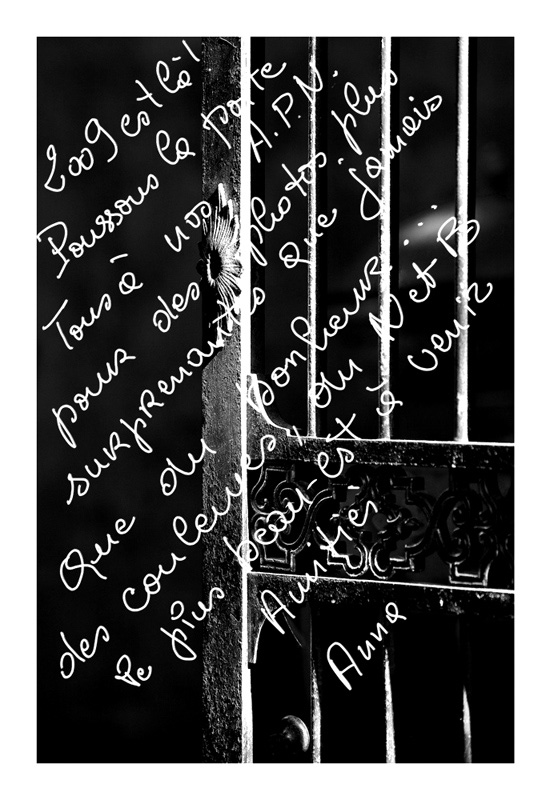 2009 est là!
Poussons la porte
Tous à nos A.P.N.
pour des photos plus
surprenantes que jamais
Que du bonheur...
des couleurs, du N et B
le plus beau est à venir
Amitiés
Anna